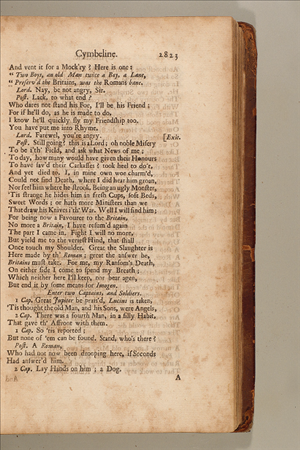 Cymbeline. 2823
And vent it for a Mock'ry? Here is one:
“ Two Boys, an old Man twice a Boy, a Lane,
“ Preserv'd the Britains, was the Romans bane.
Lord. Nay, be not angry, Sir.
Post. Lack, to what end?
Who dares not stand his Foe, I'll be his Friend;
For if he'll do, as he is made to do,
I know he'll quickly fly my Friendship too.
You have put me into Rhyme.
Lord. Farewel, you're angry. [Exit.
Post. Still going? this is a Lord; oh noble Misery
To be i'th' Field, and ask what News of me;
To day, how many would have given their Honours
To have sav'd their Carkasses? took heel to do't,
And yet died too. I, in mine own woe charm'd,
Could not find Death, where I did hear him groan,
Nor feel him where he strook. Being an ugly Monster,
'Tis strange he hides him in fresh Cups, soft Beds,
Sweet Words; or hath more Ministers than we
That draw his Knives i'th' War. Well I will find him;
For being now a Favourer to the Britain,
No more a Britain, I have resum'd again
The part I came in. Fight I will no more,
But yield me to the veriest Hind, that shall
Once touch my Shoulder. Great the Slaughter is
Here made by th' Roman; great the answer be,
Britains must take. For me, my Ransom's Death,
On either side I come to spend my Breath;
Which neither here I'll keep, nor bear agen,
But end it by some means for Imogen.
Enter two Captains, and Soldiers.
1 Cap. Great Jupiter be prais'd, Lucius is taken,
'Tis thought the old Man, and his Sons, were Angels,
2 Cap. There was a fourth Man, in a silly Habit,
That gave th' Affront with them.
1 Cap. So 'tis reported;
But none of 'em can be found. Stand, who's there?
Post. A Roman,
Who had not now been drooping here, if Seconds
Had answer'd him.
2 Cap. Lay Hands on him; a Dog.
A